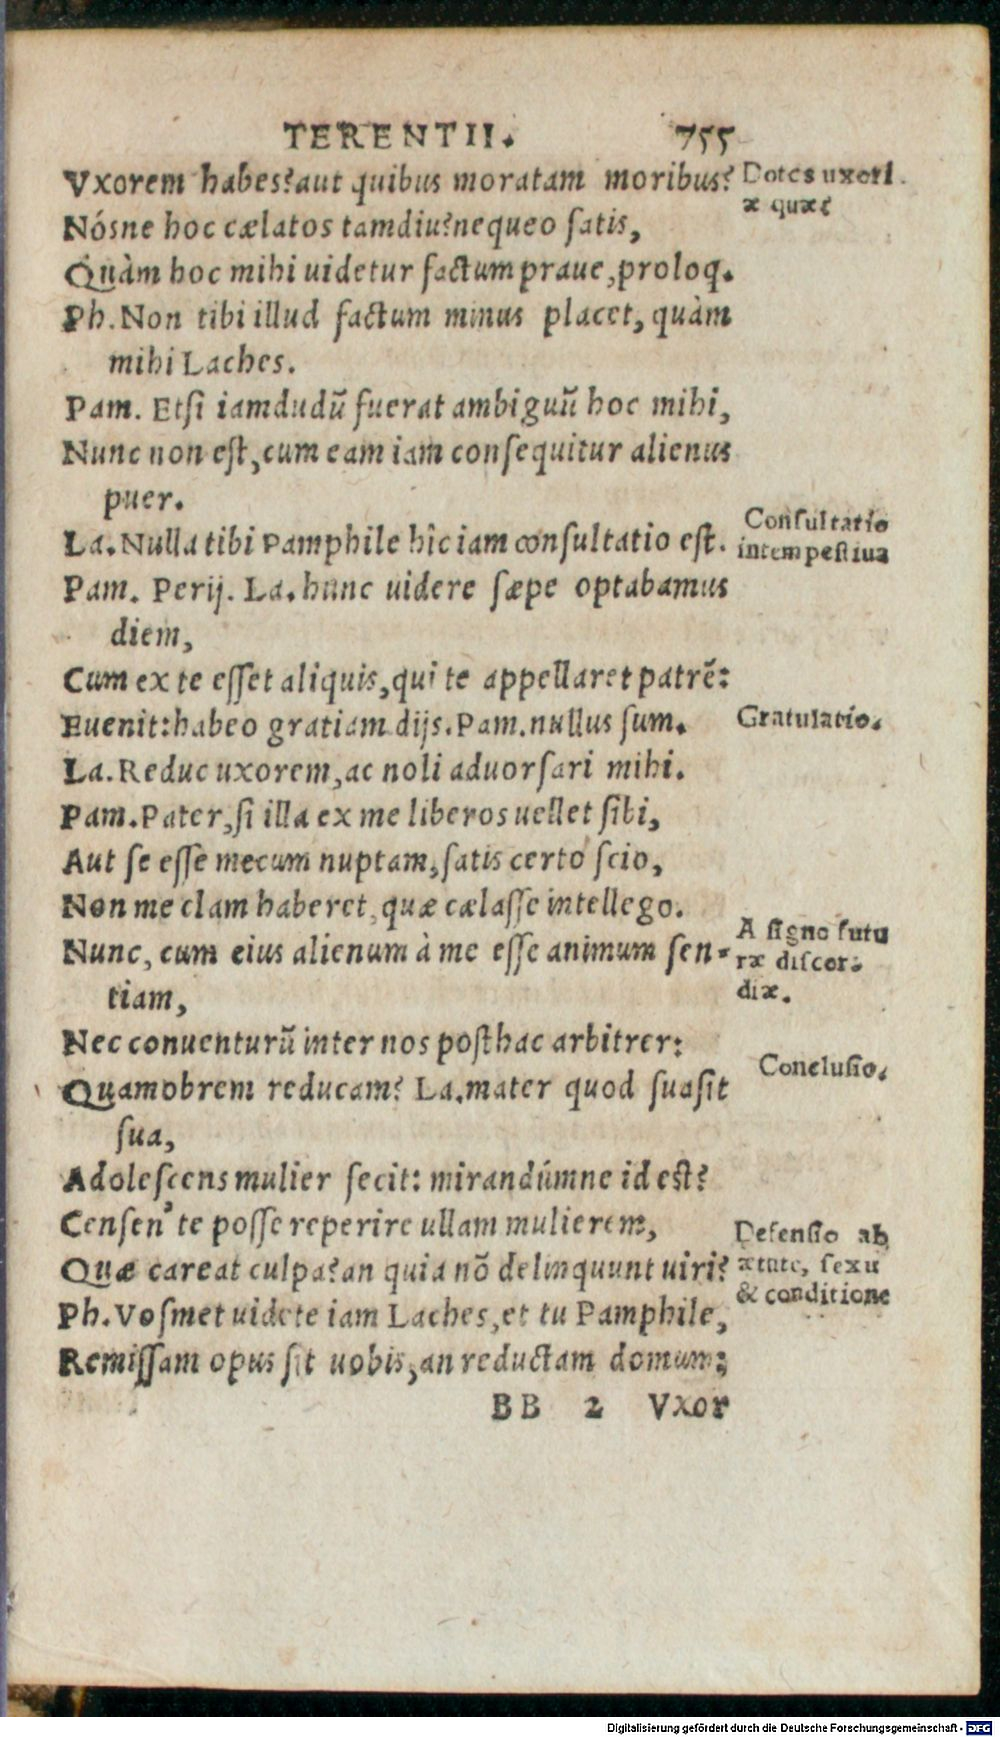 TERENTII. 755
Vxorem habes? aut quibus moratam moribus?
Nósne hoc cælatos tamdiu? nequeo satis,
Quàm hoc mihi uidetur factum praue, proloq.
Ph. Non tibi illud factum minus placet, quàm
mihi Laches.
Pam. Etsi iamdudũ fuerat ambiguũ hoc mihi,
Nunc non est, cum eam iam consequitur alienus
puer.
La. Nulla tibi Pamphile hîc iam consultatio est.
Pam. Perij. La. hunc uidere sæpe optabamus
diem,
Cum ex te esset aliquis, qui te appellaret patrẽ:
Euenit: habeo gratiam dijs. Pam. nullus sum.
La. Reduc uxorem, ac noli aduorsari mihi.
Pam. Pater, si illa ex me liberos uellet sibi,
Aut se esse mecum nuptam, satis certo scio,
Non me clam haberet, quæ cælasse intellego.
Nunc, cum eius alienum à me esse animum sen-
tiam,
Nec conuenturũ inter nos posthac arbitrer:
Quamobrem reducam? La. mater quod suasit
sua,
Adolescens mulier fecit: mirandúmne id est?
Censen' te posse reperire ullam mulierem,
Quæ careat culpa? an quia nõ delinquunt uiri?
Ph. Vosmet uidete iam Laches, et tu Pamphile,
Remissam opus sit uobis, an reductam domum:
BB 2 Vxor
Dotes uxori
æ quæ?
Consultatio
intempestiua
Gratulatio.
A signo futu
ræ discor-
diæ.
Conclusio.
Defensio ab
ætate, sexu
& conditione
Digitalisierung gefördert durch die Deutsche Forschungsgemeinschaft - DFG